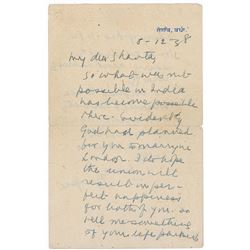 सेगाँव, वर्धा
8-12-38
My dear Shanta,
So what was not
possible in India
has become possible
there. Evidently
God had planned
for you to marry in
London. I do hope
the union will
result in per-
fect happiness
for both of you. do
tell me something
of your life partner